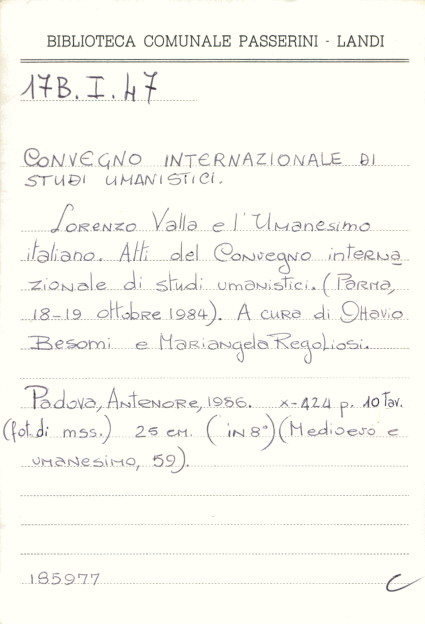 BIBLIOTECA COMUNALE PASSERINI - LANDI
17B.I.47
CONVEGNO INTERNAZIONALE DI
STUDI UMANISTICI.
Lorenzo Valla e l'Umanesimo
italiano. Atti del Convegno interna
zionale di studi umanistici. (Parma,
18-19 ottobre 1984). A cura di Ottavio
Besomi e Mariangela Regoliosi.
Padova, Antenore, 1986. x-424 p. 10 Tav.
(fot. di mss.) 25 cm. (in 8°) (Medioevo e
umanesimo, 59).
185977
C